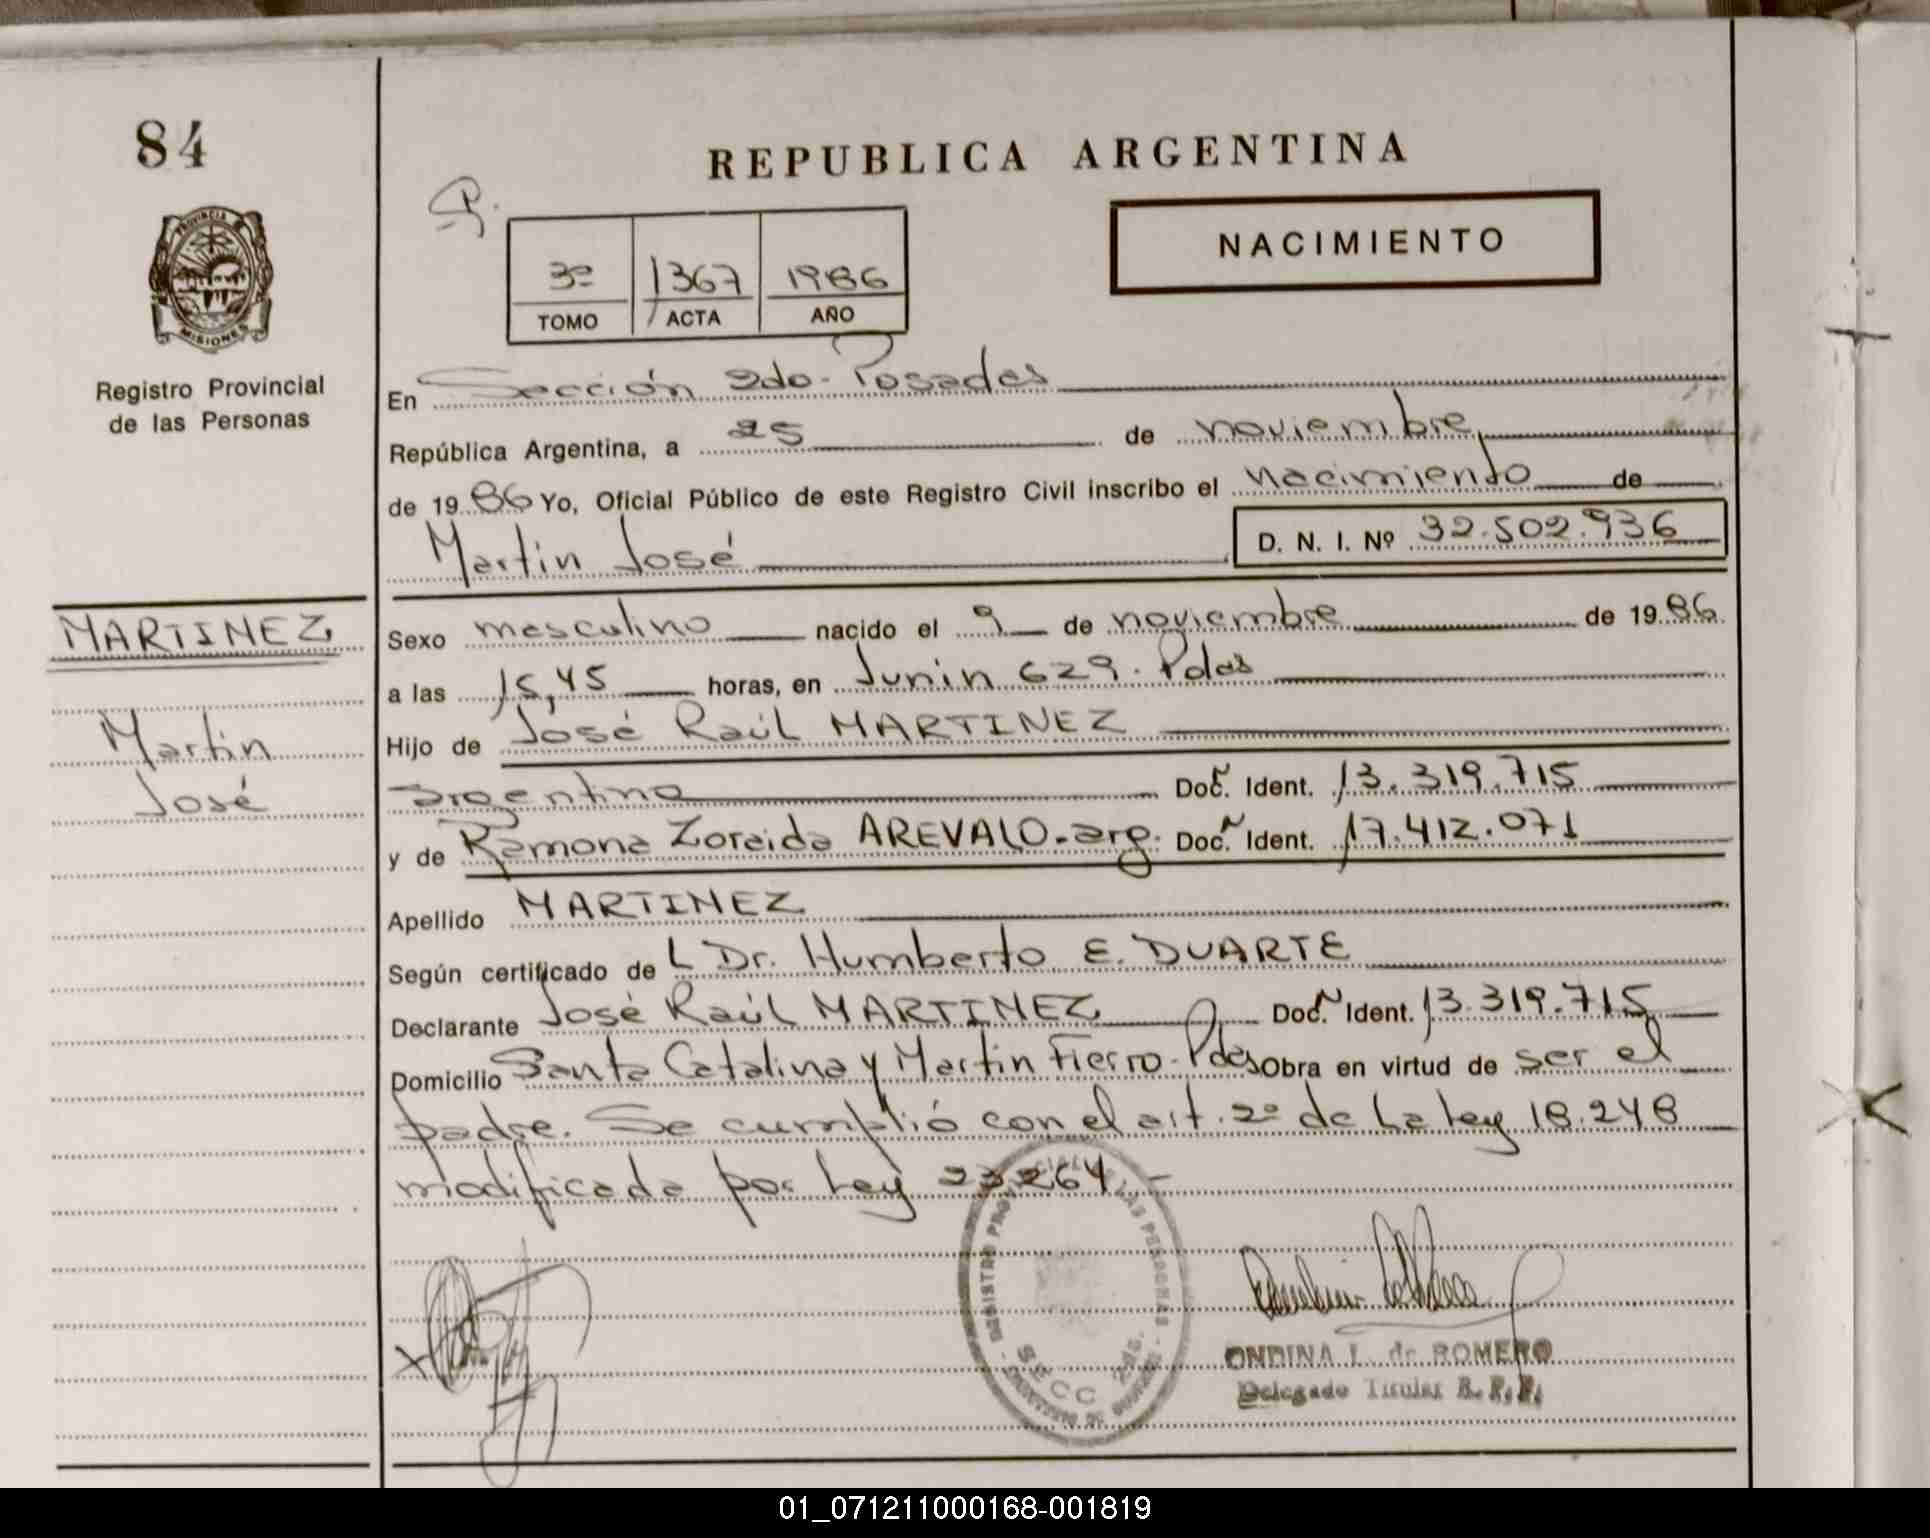 84
REPUBLICA ARGENTINA
PROVINCIA
MISIONES
Registro Provincial
de las Personas
3º 1367 1986
TOMO ACTA AÑO
NACIMIENTO
En Sección 2do. Posadas
República Argentina, a 25 de noviembre
de 1986 Yo, Oficial Público de este Registro Civil inscribo el nacimiento de
Martin José D. N. I. Nº 32.502.936
MARTINEZ
Martin
José
Sexo masculino nacido el 9 de noviembre de 1986
a las 15,45 horas, en Junin 629. Pdas
Hijo de José Raúl MARTINEZ
argentino Doc. Ident. 13.319.715
y de Ramona Zoraida AREVALO-arg. Doc. Ident. 17.412.071
Apellido MARTINEZ
Según certificado de L Dr. Humberto E. DUARTE
Declarante José Raúl MARTINEZ Doc. Ident. 13.319.715
Domicilio Santa Catalina y Martin Fierro-Pdas Obra en virtud de ser el
padre. Se cumplió con el art. 2º de La Ley 18.248
modificada por Ley 23264 -
SECC 2da.
ONDINA L. de ROMERO
Delegado Titular R. P. P.
01_071211000168-001819